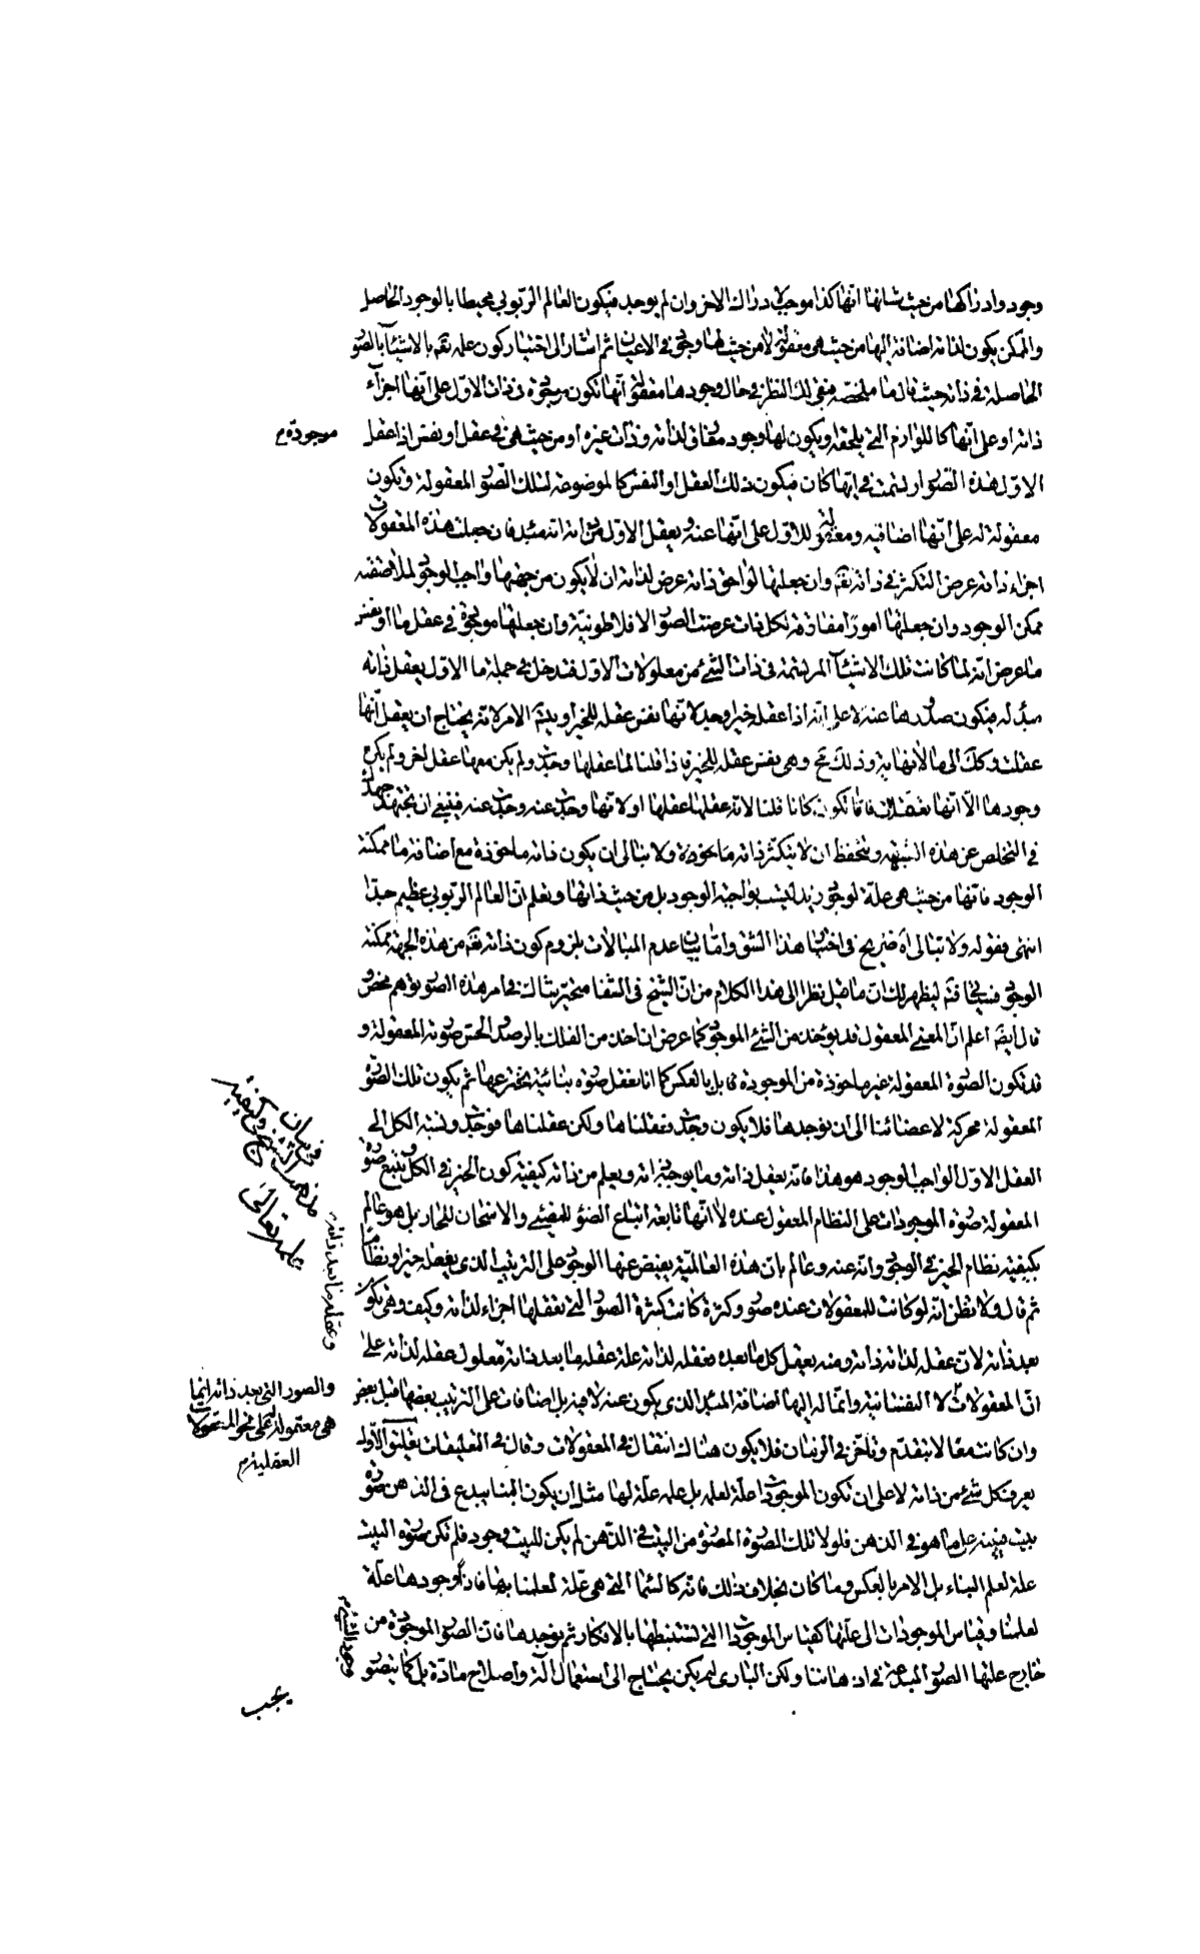 وجود وادراكها من حيث شانها انها كذا موجب لادراك الاخر وان لم يوجد فيكون العالم الربوبي محيطا بالوجود الحاصل
والممكن يكون لذاته اضافة اليها من حيث هى معقولة لا من حيث لها وجود فى الاعيان ثم اشار الى اختيار كون علمه تعه بالاشياء بالصور
الحاصلة فى ذاته حيث قال ما ملخصه فبقى لك النظر فى حال وجودها معقولة انها تكون موجودة فى ذات الاول على انها اجزاء
ذاته او على انها كاللوازم التى يلحقه او يكون لها وجود مفارق لذاته وذات غيره او من حيث هى فى عقل او نفس اذا عقل
موجودة م
الاول هذه الصور ارتسمت فى ايها كان فيكون ذلك العقل او النفس كالموضوعة لتلك الصور المعقولة وتكون
معقولة له على انها اضافيه ومعقولة للاول على انها عنه ويعقل الاول من ذاته انه مبدء فان جعلت هذه المعقولات
اجزاء ذاته عرض التكثر فى ذاته تعه وان جعلتها لواحق ذاته عرض لذاته ان لا يكون من جهتها واجب الوجود لملاصقته
ممكن الوجود وان جعلتها امورا مفارقة لكل ذات عرضت الصور الافلاطونية وان جعلتها موجودة فى عقل ما او نفس
ما عرض انه لما كانت تلك الاشياء المرتسمة فى ذات الشئ من معلولات الاول فتدخل فى جملة ما الاول يعقل ذاته
مبدء له فيكون صدورها عنه لا على انه اذا عقله خيرا وجد لانها نفس عقله للخير او يتم الامر لانه يحتاج ان يعقل انها
عقلت وكك الى ما لا نهاية وذلك مح وهى نفس عقله للخير فاذا قلنا لما عقلها وجدت ولم يكن معها عقل اخر ولم يكن
وجودها الا انها تعقلات فانما نكون كانا قلنا لانه عقلها عقلها او لانها وجدت عنه وجدت عنه فينبغى ان تجتهد جهدك
فى التخلص عن هذه الشبهة وتتحفظ ان لا يتكثر ذاته ماخوذة ولا تبالى ان يكون ذاته ماخوذة مع اضافة ما ممكنة
الوجود فانها من حيث هى علة لوجود زيد ليست بواجبة الوجود بل من حيث ذاتها وتعلم ان العالم الربوبى عظيم جدا
انتهى فقوله ولا تبالى اه صريح فى اختيار هذا الشق واما بيان عدم المبالات بلزوم كون ذاته تعه من هذه الجهة ممكنة
الوجود فسيجئ فتم ليظهر لك ان ما قيل نظرا الى هذا الكلام من ان الشيخ فى الشفا متحير شاك فى امر هذه الصور توهم محض و
قال ايضا اعلم ان المعنى المعقول قد يؤخذ من الشئ الموجود كما عرض ان اخذنا من الفلك بالرصد والحس صورته المعقولة و
قد تكون الصورة المعقولة غير ماخوذة من الموجودة قابل بالعكس كما انا نعقل صورة بنائية نخترعها ثم يكون تلك الصورة
المعقولة محركة لاعضائنا الى ان نوجدها فلا يكون وجدت فعقلناها ولكن عقلناها فوجدت ونسبة الكل الى
العقل الاول الواجب الوجود هو هذا فانه يعقل ذاته وما يوجبه ذاته ويعلم من ذاته كيفية كون الخير فى الكل فيتبع صورة
المعقولة صورة الموجودات على النظام المعقول عنده لا انها تابعة اتباع الضوء للمضيئ والاسخان للحار بل هو عالم
بكيفية نظام الخير فى الوجود وانه عنه وعالم بان هذه العالمية يفيض عنها الوجود على الترتيب الذى يعقله خيرا ونظاما
ثم قال ولا تظن انه لو كانت للمعقولات عنده صور وكثرة كانت كثرة الصور التى نعقلها اجزاء لذاته وكيف وهى تكون
بعد ذاته لان عقله لذاته ذاته ومنه يعقل كل ما بعده فعقله لذاته علة عقله ما بعد ذاته معلول عقله لذاته على
ان المعقولات لا النفسانية وانما له اليها اضافة المبدء الذى يكون عنه لا فيه بل اضافات على الترتيب بعضها قبل بعض
وان كانت معا لا بتقدم وتاخر فى الزمان فلا يكون هناك انتقال فى المعقولات وقال فى التعليقات الاول
يعرف كل شئ من ذاته لا على ان تكون الموجودات علة لعلمه بل علمه علة لها مثل ان يكون البناء يبدع فى الذهن صورة
بيت فيبنيه على ما هو فى الذهن فلولا تلك الصورة المتصورة من البيت فى الذهن لم يكن للبيت وجود فلم تكن صورة البيت
علة لعلم البناء بل الامر بالعكس وما كان بخلاف ذلك فانه كالسماء التى هى علة لعلمنا بها فان وجودها علة
لعلمنا وقياس الموجودات الى علمها كقياس الموجودات التى نستنبطها بالافكار ثم نوجدها فان الصور الموجودة من
خارج علتها الصور المبدعة فى اذهاننا ولكن البارى لم يكن يحتاج الى استعمال الة واصلاح مادة بل كما يتصور
يجب
فى بيان كيفية
مذهب الشيخ فى
علمه تعالى
وعقله ما بعد ذاته م
والصور التى بعد ذاته انما
هى معقولة على نحو المعقولات
العقلية م
وجود الشئ م